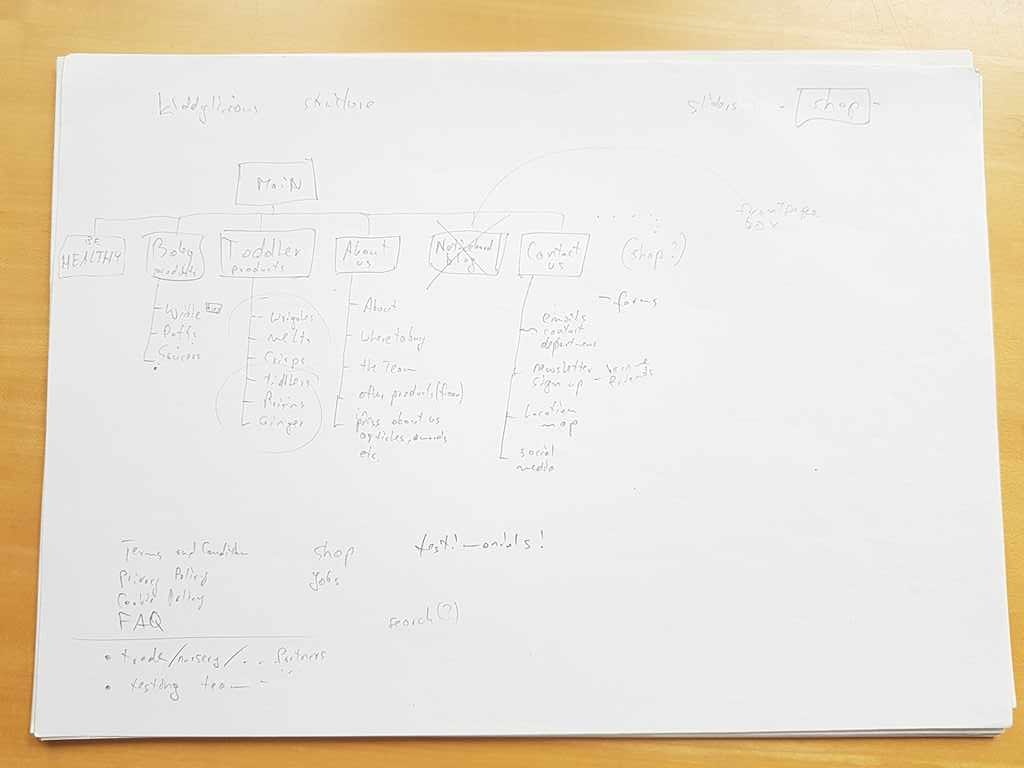 Kiddylicious structure
sliders
- shop -
MAIN
front page
box
BE
HEALTHY
Baby
products
Toddler
products
About
us
Noticeboard
blog
Contact
us
(shop?)
Puffs
Wriggles
Melts
Crisps
tiddlers
Raisins
Ginger
About
where to buy
the Team
other products
press about us
articles, awards
etc.
- forms
emails
contact
department
newsletter
sign up
friends
Location
map
social
media
Terms and Condition
Privacy Policy
Cookie Policy
FAQ
shop
jobs
testimonials!
search(?)
• trade/nursery/... Partners
• testing team -